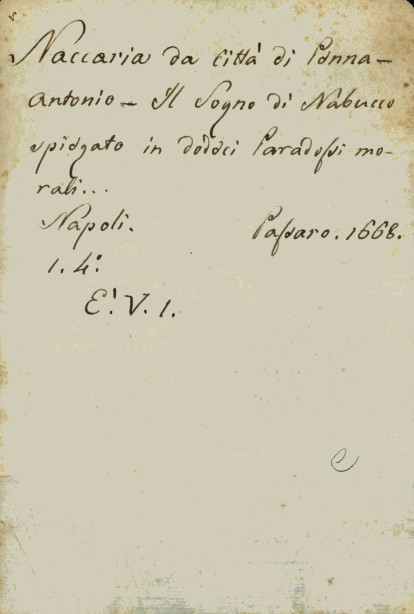 Naccaria da Città di Penna –
Antonio – Il Sogno di Nabucco
spiegato in dodeci Paradossi mo-
rali...
Napoli. Passaro. 1668.
1. 4.º
E'. V. 1.
C